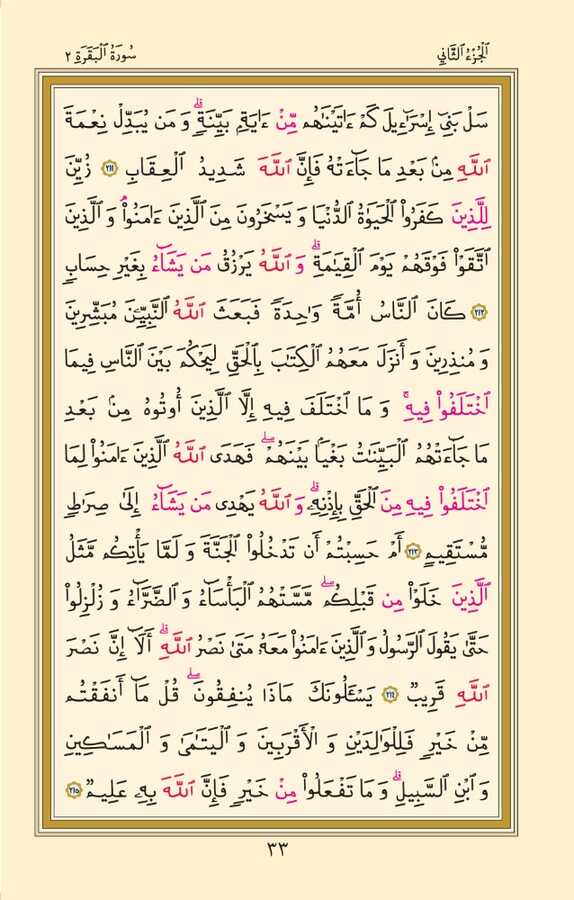 الجزء الثاني
سورة البقرة ٢
سَلْ بَنِىٓ إِسْرَٰٓءِيلَ كَمْ ءَاتَيْنَٰهُم مِّنْ ءَايَةِۭ بَيِّنَةٍۗ وَ مَن يُبَدِّلْ نِعْمَةَ
ٱللَّهِ مِنۢ بَعْدِ مَا جَآءَتْهُ فَإِنَّ ٱللَّهَ شَدِيدُ ٱلْعِقَابِ ٢١١ زُيِّنَ
لِلَّذِينَ كَفَرُوا۟ ٱلْحَيَوٰةُ ٱلدُّنْيَا وَ يَسْخَرُونَ مِنَ ٱلَّذِينَ ءَامَنُوا۟ۘ وَ ٱلَّذِينَ
ٱتَّقَوْا۟ فَوْقَهُمْ يَوْمَ ٱلْقِيَٰمَةِۗ وَ ٱللَّهُ يَرْزُقُ مَن يَشَآءُ بِغَيْرِ حِسَابٍ
٢١٢ كَانَ ٱلنَّاسُ أُمَّةً وَٰحِدَةً فَبَعَثَ ٱللَّهُ ٱلنَّبِيِّۦنَ مُبَشِّرِينَ
وَ مُنذِرِينَ وَ أَنزَلَ مَعَهُمُ ٱلْكِتَٰبَ بِٱلْحَقِّ لِيَحْكُمَ بَيْنَ ٱلنَّاسِ فِيمَا
ٱخْتَلَفُوا۟ فِيهِۚ وَ مَا ٱخْتَلَفَ فِيهِ إِلَّا ٱلَّذِينَ أُوتُوهُ مِنۢ بَعْدِ
مَا جَآءَتْهُمُ ٱلْبَيِّنَٰتُ بَغْيَۢا بَيْنَهُمْۖ فَهَدَى ٱللَّهُ ٱلَّذِينَ ءَامَنُوا۟ لِمَا
ٱخْتَلَفُوا۟ فِيهِ مِنَ ٱلْحَقِّ بِإِذْنِهِۦۗ وَ ٱللَّهُ يَهْدِى مَن يَشَآءُ إِلَىٰ صِرَٰطٍ
مُّسْتَقِيمٍ ٢١٣ أَمْ حَسِبْتُمْ أَن تَدْخُلُوا۟ ٱلْجَنَّةَ وَ لَمَّا يَأْتِكُم مَّثَلُ
ٱلَّذِينَ خَلَوْا۟ مِن قَبْلِكُمۖ مَّسَّتْهُمُ ٱلْبَأْسَآءُ وَ ٱلضَّرَّآءُ وَ زُلْزِلُوا۟
حَتَّىٰ يَقُولَ ٱلرَّسُولُ وَ ٱلَّذِينَ ءَامَنُوا۟ مَعَهُۥ مَتَىٰ نَصْرُ ٱللَّهِۗ أَلَآ إِنَّ نَصْرَ
ٱللَّهِ قَرِيبٌ ٢١٤ يَسْـَٔلُونَكَ مَاذَا يُنفِقُونَۖ قُلْ مَآ أَنفَقْتُم
مِّنْ خَيْرٍ فَلِلْوَٰلِدَيْنِ وَ ٱلْأَقْرَبِينَ وَ ٱلْيَتَٰمَىٰ وَ ٱلْمَسَٰكِينِ
وَ ٱبْنِ ٱلسَّبِيلِۗ وَ مَا تَفْعَلُوا۟ مِنْ خَيْرٍ فَإِنَّ ٱللَّهَ بِهِۦ عَلِيمٌ ٢١٥
٣٣